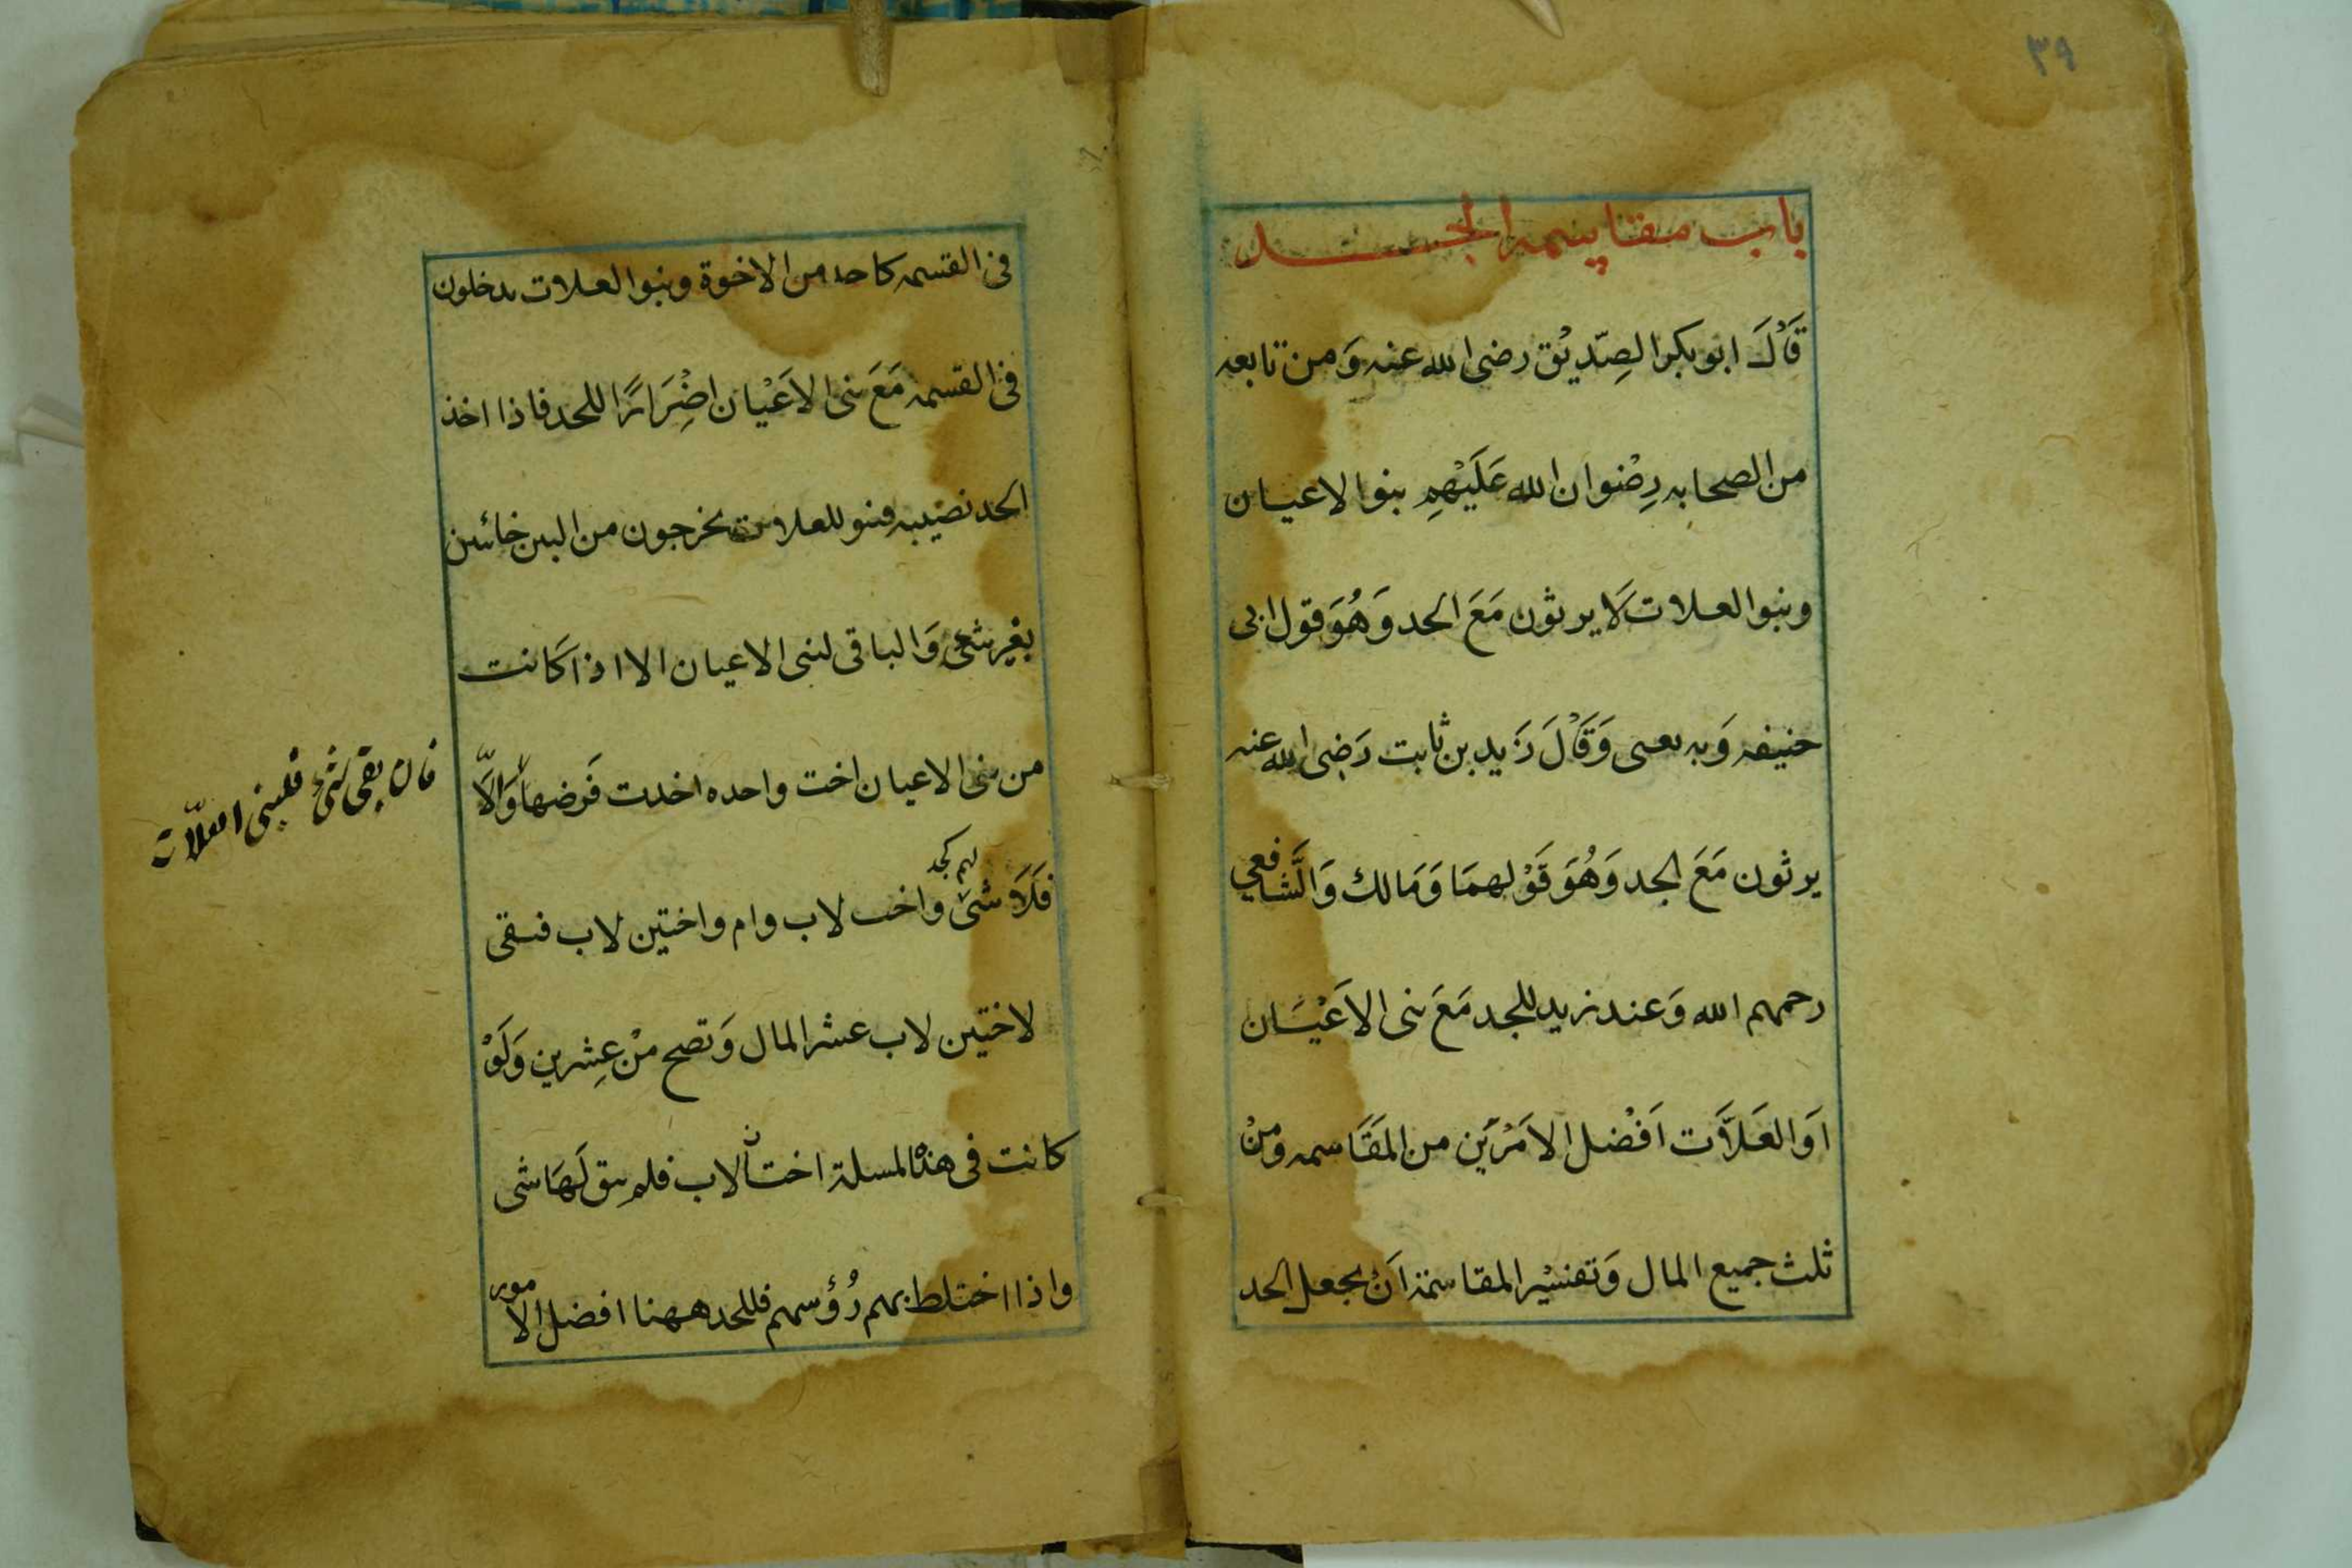 ٣٩
باب مقاسمه الجد
قَالَ ابو بكر الصِّديْق رضى الله عنه وَمن تابعه
من الصحابه رِضْوان الله عَلَيْهِم بنوا الاعيان
وبنوا العلات لَا يرثون مَعَ الجد وَهُوَ قول ابى
حنيفه وَبه يفتى وَقَالَ زَيد بن ثابت رَضِى الله عنه
يرثون مَعَ الجد وَهُوَ قَوْلهمَا وَمَالك وَالشَّافعي
رحمهم الله وَعند زيد للجد مَعَ بنى الاَعْيَان
اَو العَلَّات اَفْضل الاَمْرَين من المقَاسمه ومنْ
ثلث جميع المال وَتفسْير المقاسمة اَنْ يجعل الجد
فى القسمه كاحد من الاخوة وبنوا العلات يدخلون
فى القسمه مَعَ بنى الاَعْيَان اضْرَارًا للجد فاذا اخذ
الجد نصيبه فبنو العلات يخرجون من البين خائبين
بغير شئ وَالباقى لبنى الاعيان الا اذا كَانت
من بنى الاعيان اخت واحده اخذت فَرضها وَالَّا
فان بقى شئ فلبنى العلّات
فَلَا شئ لهم كجد واخت لاب وام واختين لاب فبقى
لاختين لاب عشر المال وَتصح منْ عِشرين وَلَوْ
كانت فى هذه المسلة اختا لاب فلم يبق لَهَا شى
واذا اختلط بهم رُؤسهم فللجد ههنا افضل الامور